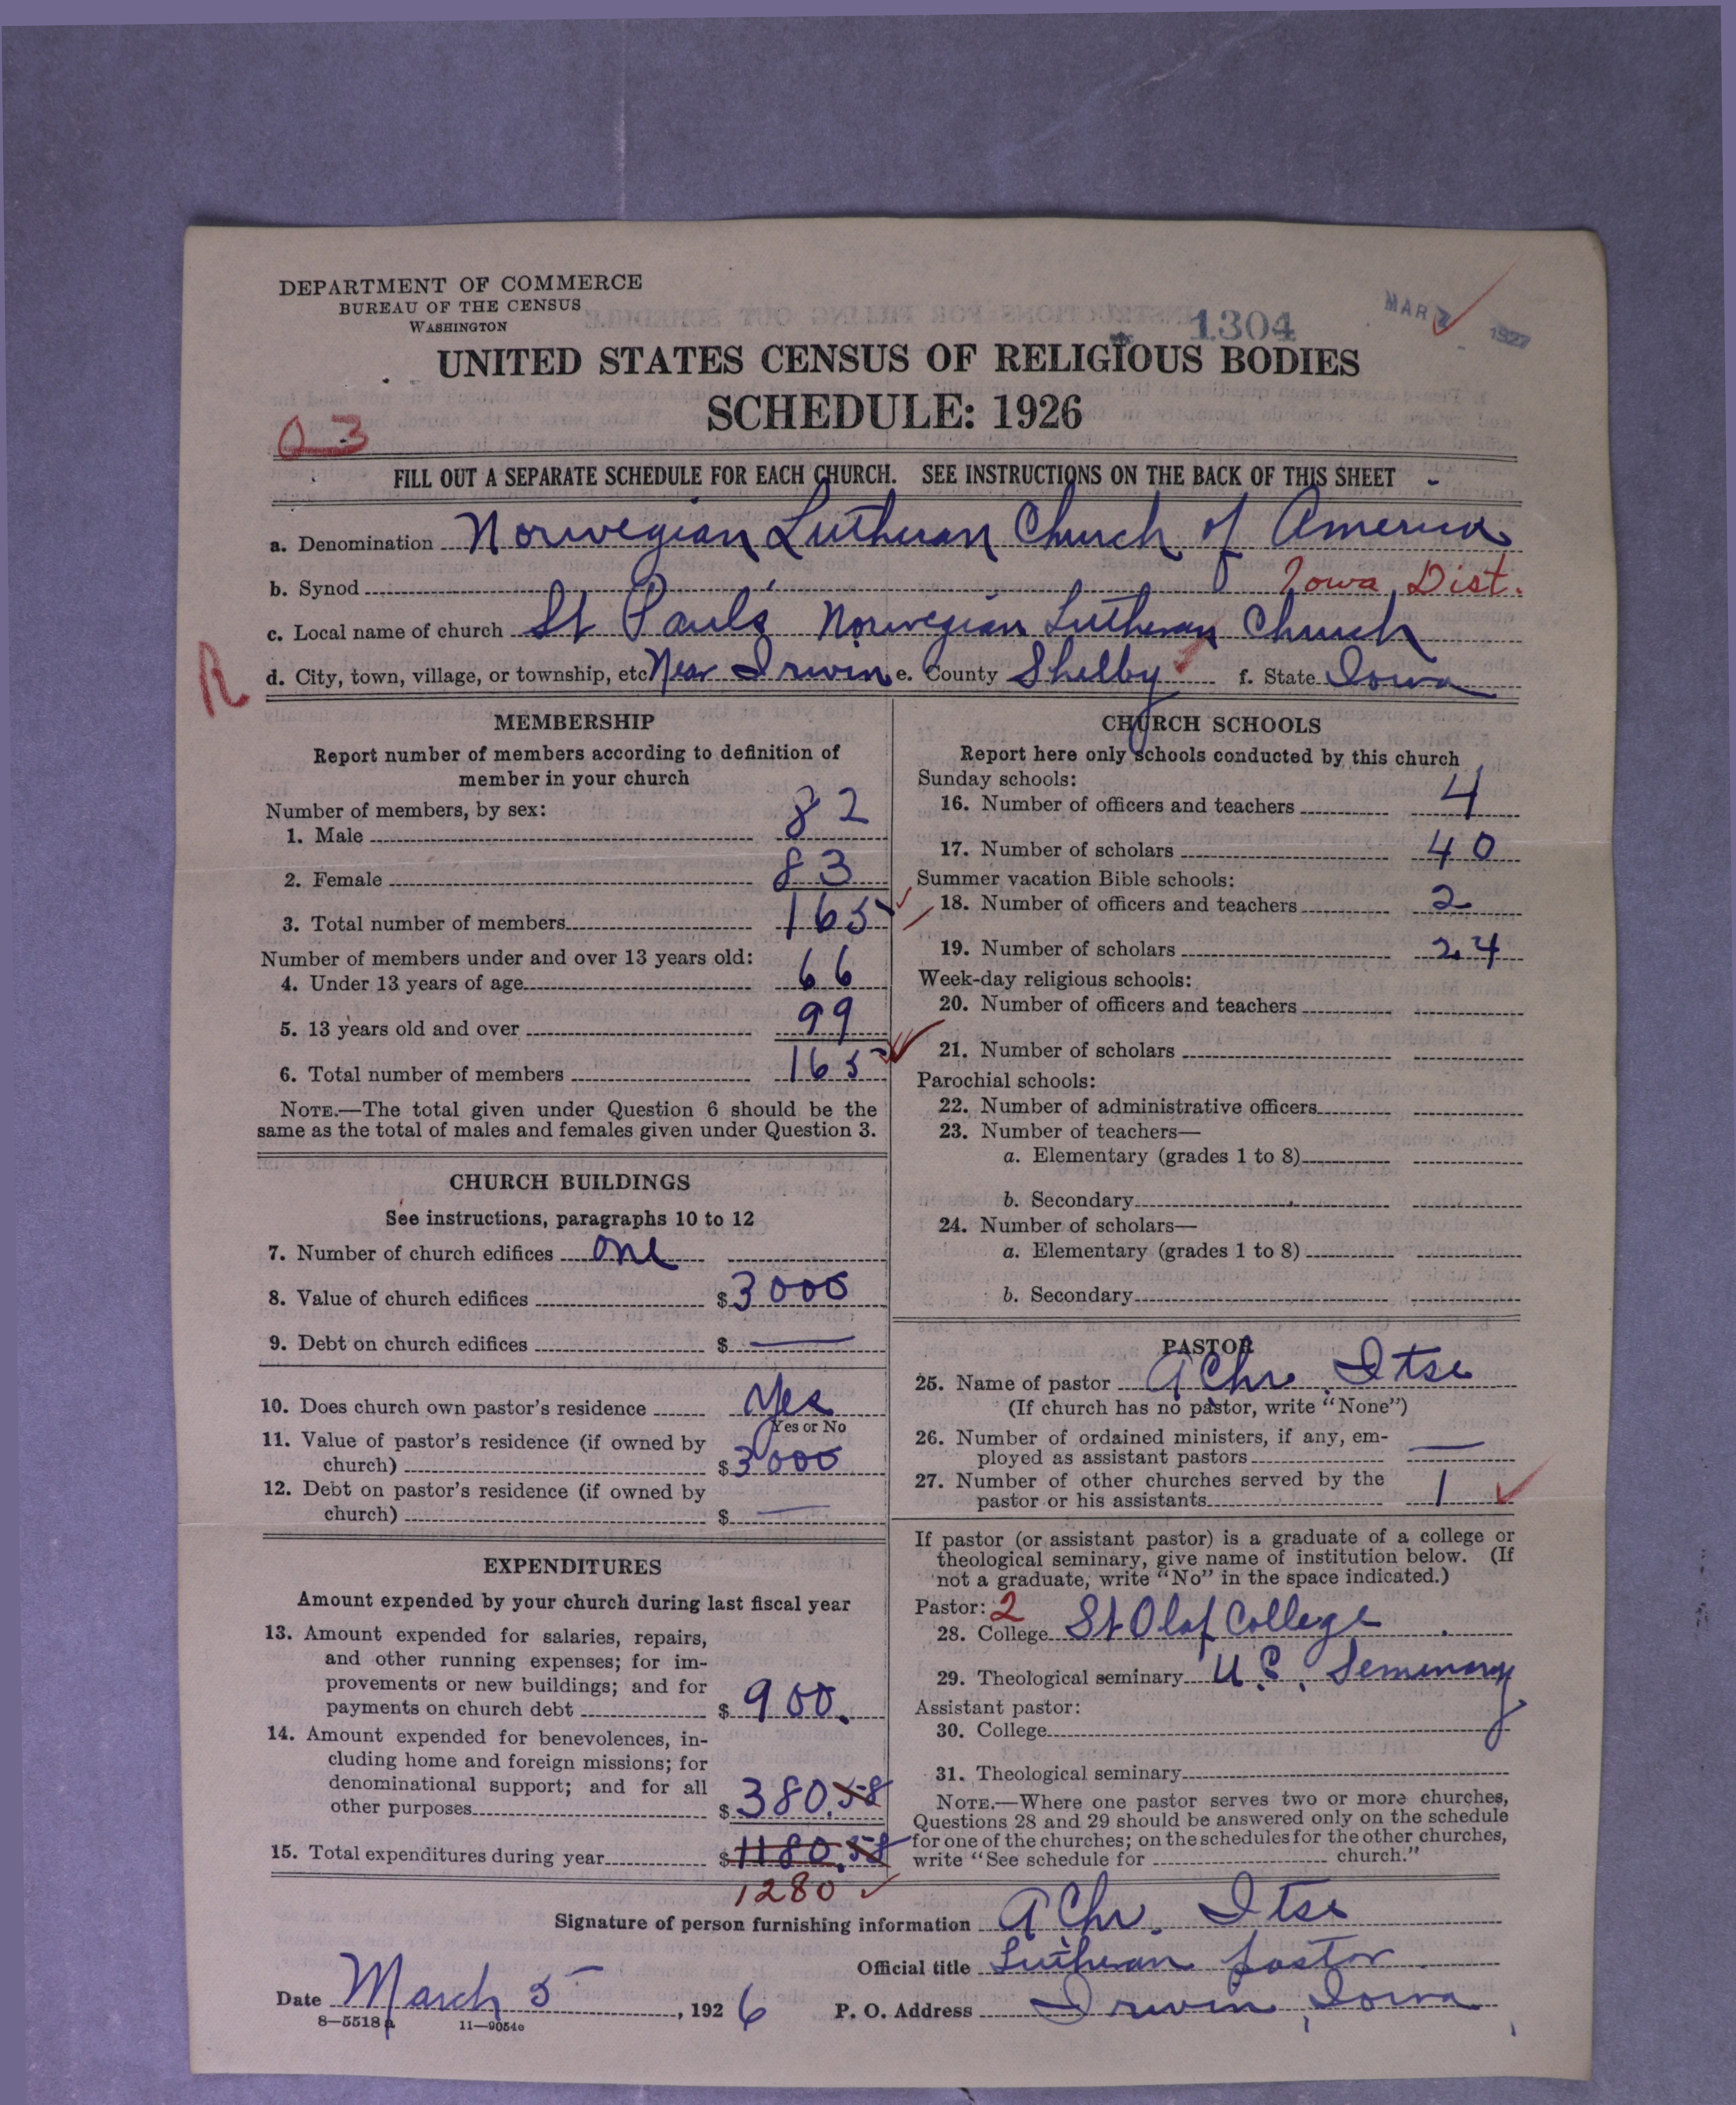 DEPARTMENT OF COMMERCE
BUREAU OF THE CENSUS
WASHINGTON
1304
MAR 7 1927
UNITED STATES CENSUS OF RELIGIOUS BODIES
SCHEDULE: 1926
0-3
FILL OUT A SEPARATE SCHEDULE FOR EACH CHURCH. SEE INSTRUCTIONS ON THE BACK OF THIS SHEET
a. Denomination Norwegian Lutheran Church of America
b. Synod Iowa Dist.
c. Local name of church St Pauls' Norwegian Lutheran Church
R
d. City, town, village, or township, etc Near Irwin e. County Shelby f. State Iowa
MEMBERSHIP
Report number of members according to definition of
member in your church
Number of members, by sex:
1. Male 82
2. Female 83
3. Total number of members 165
Number of members under and over 13 years old:
4. Under 13 years of age 66
5. 13 years old and over 99
6. Total number of members 165
NOTE.—The total given under Question 6 should be the
same as the total of males and females given under Question 3.
CHURCH BUILDINGS
See instructions, paragraphs 10 to 12
7. Number of church edifices one
8. Value of church edifices $3000
9. Debt on church edifices $ —
10. Does church own pastor's residence Yes
Yes or No
11. Value of pastor's residence (if owned by
church) $3000
12. Debt on pastor's residence (if owned by
church) $ —
EXPENDITURES
Amount expended by your church during last fiscal year
13. Amount expended for salaries, repairs,
and other running expenses; for im-
provements or new buildings; and for
payments on church debt $ 900.
14. Amount expended for benevolences, in-
cluding home and foreign missions; for
denominational support; and for all
other purposes $380.58
15. Total expenditures during year $1180.58
1280
CHURCH SCHOOLS
Report here only schools conducted by this church
Sunday schools:
16. Number of officers and teachers 4
17. Number of scholars 40
Summer vacation Bible schools:
18. Number of officers and teachers 2
19. Number of scholars 24
Week-day religious schools:
20. Number of officers and teachers
21. Number of scholars
Parochial schools:
22. Number of administrative officers
23. Number of teachers—
a. Elementary (grades 1 to 8)
b. Secondary
24. Number of scholars—
a. Elementary (grades 1 to 8)
b. Secondary
PASTOR
25. Name of pastor A Chr. Itse
(If church has no pastor, write "None")
26. Number of ordained ministers, if any, em-
ployed as assistant pastors —
27. Number of other churches served by the
pastor or his assistants 1
If pastor (or assistant pastor) is a graduate of a college or
theological seminary, give name of institution below. (If
not a graduate, write "No" in the space indicated.)
Pastor: 2
28. College St Olaf College
29. Theological seminary U.C. Seminary
Assistant pastor:
30. College
31. Theological seminary
NOTE.—Where one pastor serves two or more churches,
Questions 28 and 29 should be answered only on the schedule
for one of the churches; on the schedules for the other churches,
write "See schedule for church."
Signature of person furnishing information A Chr. Itse
Official title Lutheran pastor
Date March 5, 1926 P. O. Address Irwin, Iowa
8—5518 a 11—9054c